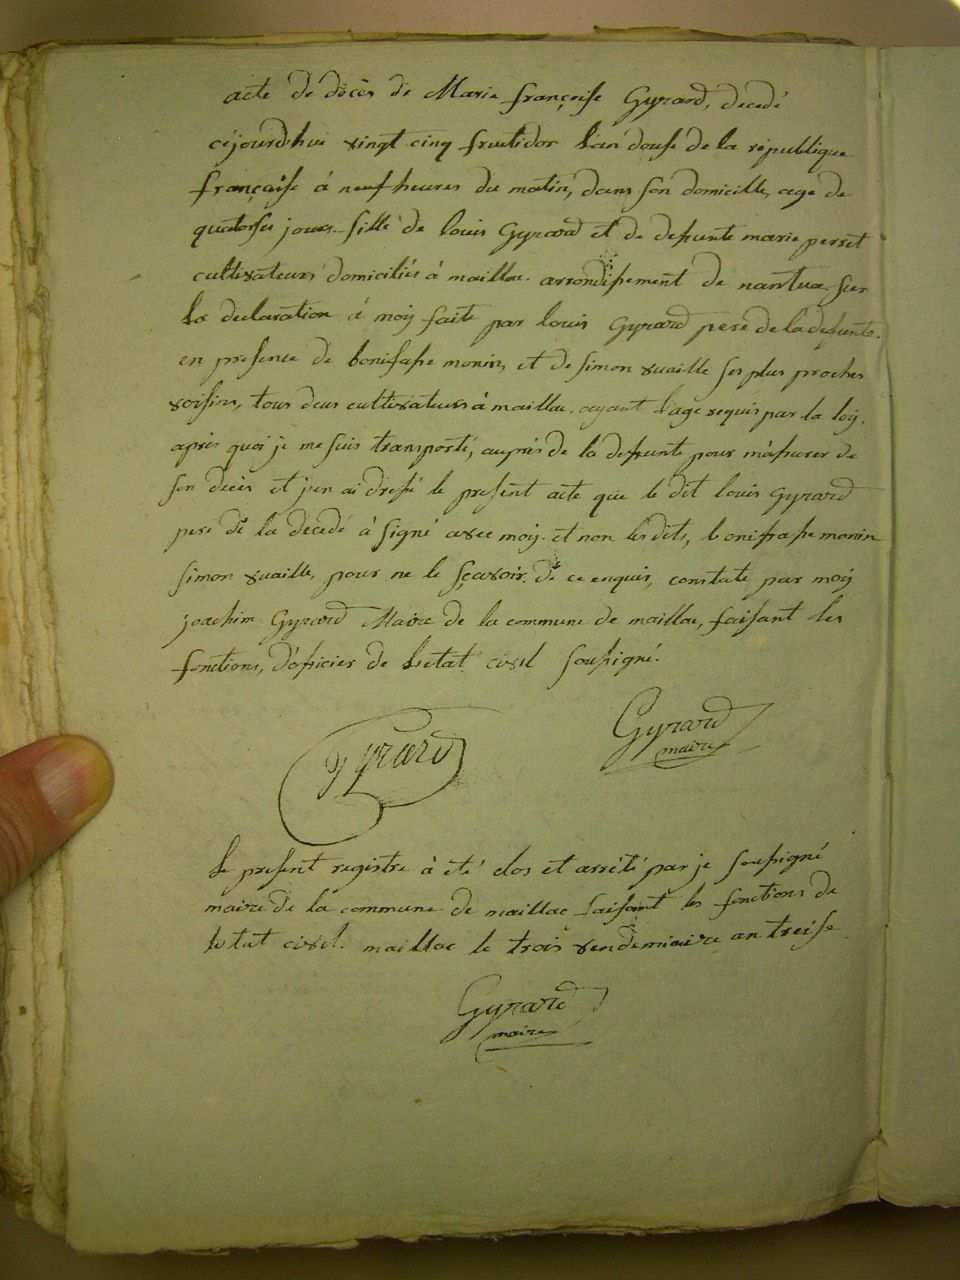 acte de décès de Marie françoise Gyrard, décedé
cejourdhui vingt cinq fructidor l'an douse de la république
françoise á neuf heures du matin, dans son domicille, agé de
quatorses jours fille de louis Gyrard et de defunte marie perret
cultivateurs domiciliés á maillac arrondissement de nantua sur
la declaration á moy faite par louis Gyrard pere de la defunte
en presence de bonifasse monin, et de simon vuaille ses plus proches
voisins, tous deus cultivateurs á maillac ayant l'age requis par la loy,
après quoi je me suis transporté, auprès de la defunte pour m'assurer de
son decès et j'en ai dressé le present acte que le dit louis Gyrard
pere de la decedé à signé avec moy et non les dits, bonifasse monin
simon vuaille, pour ne le sçavoir de ce enquis, constaté par moy
joachim Gyrard Maire de la commune de maillac, faisant les
fonctions, d'oficier de l'etat civil soussigné.
Gyrard
Gyrard
maire
le present registre à été clos et arrété par je soussigné
maire de la commune de maillac faisant les fonctions de
l'etat civil. maillac le trois vendemiaire an treise
Gyrard
maire